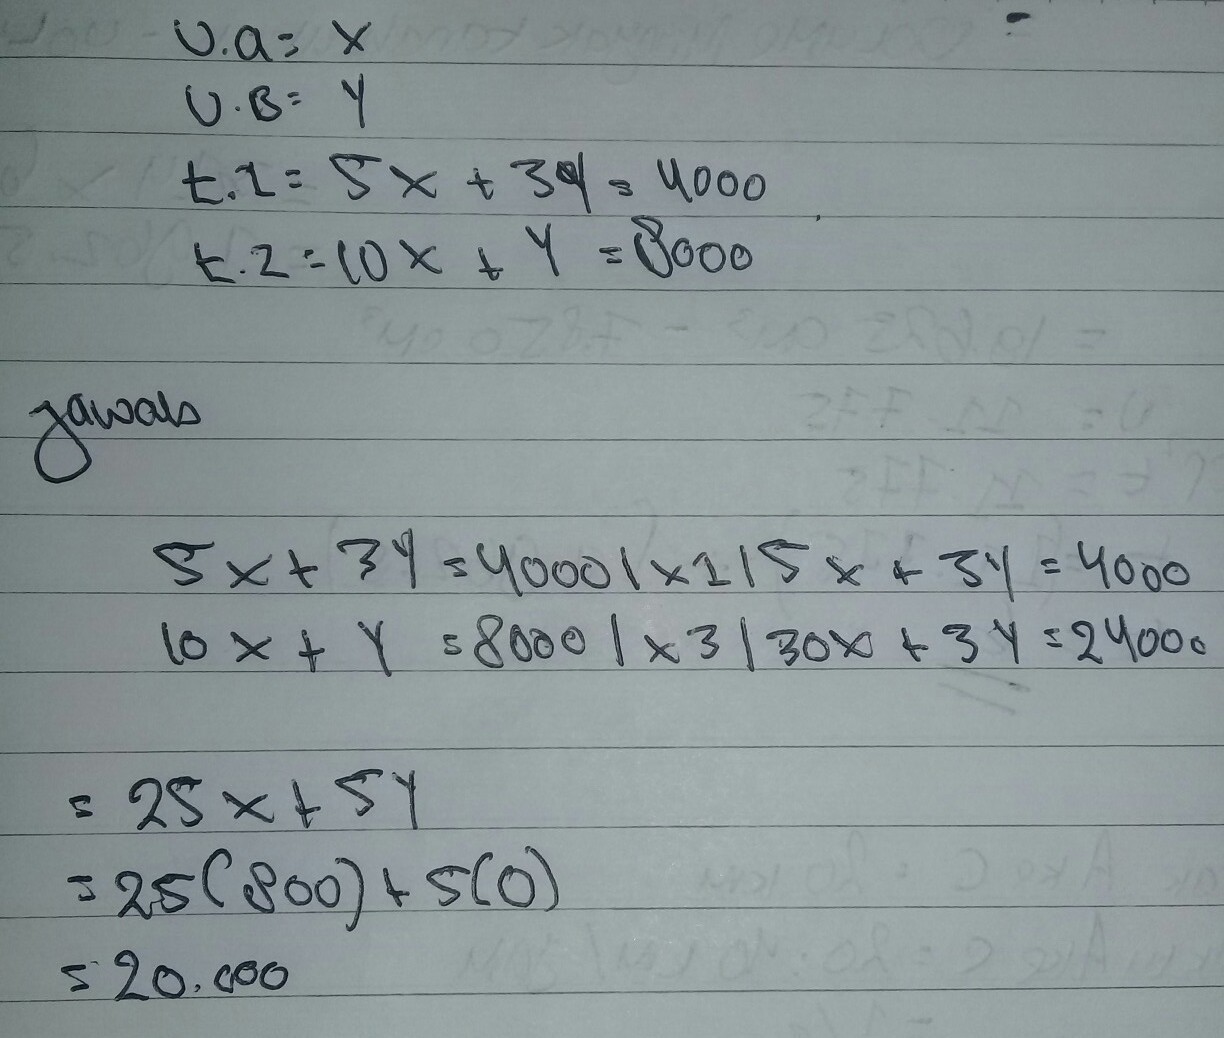 U.a= x
U.B= y
t.1= 5x + 3y = 4000
t.2=10x + y =8000
Jawab
5x+ 3y =4000|x1|5x + 3y = 4000
10x + y =8000|x3|30x + 3y =24000
= 25x+5y
= 25(800)+5(0)
= 20.000